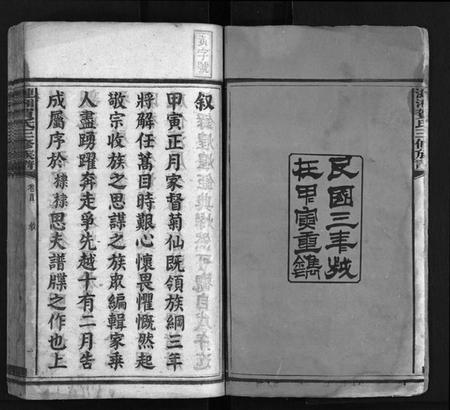 民國三年歲
在甲寅重鐫
黃字號
叙
甲寅正月家督菊仙既領族綱三年
將解任萬目時艱心懷畏懼慨然起
敬宗收族之思謀之族眾編輯家乘
人盡踴躍奔走爭先越十有二月告
成屬序於棣棣思夫譜牒之作也上
卷首
叙